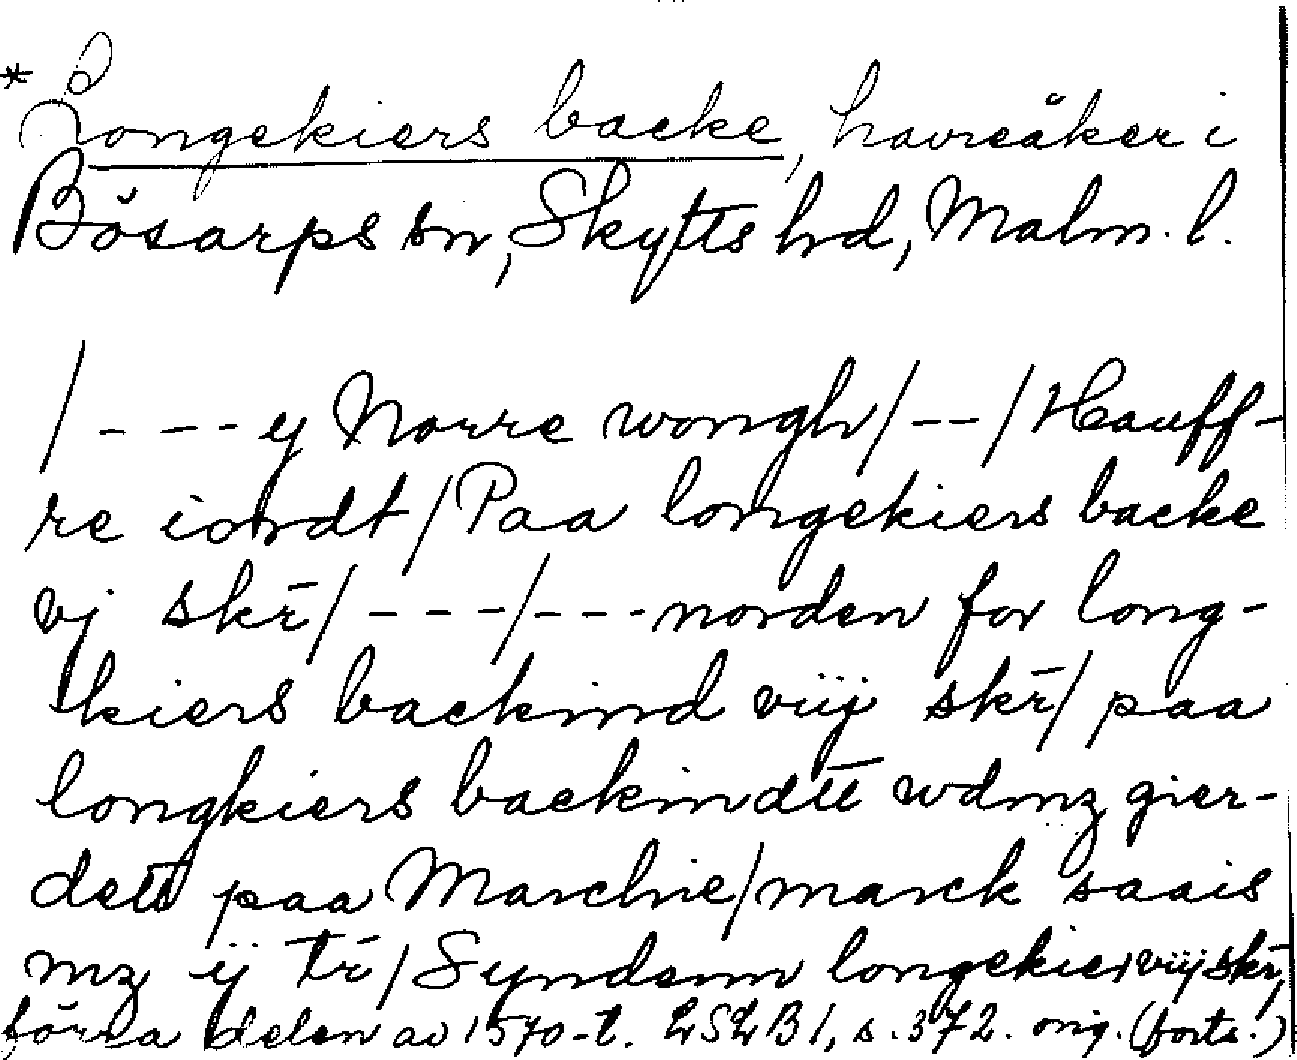 * Longekiers backe, havreåker i
Bösarps sn, Skytts hd, Malm. l.
/ - - - y Norre wongh / - - / Hauff-
re iordt / Paa longekiers backe
vj skr̄ / - - - / - - - norden for long-
kiers backind viij skr̄ / paa
longkiers backindtt wdmz gier-
dett paa Marchie / marck saais
mz ij tr̄ / Synden longekier viij skr̄,
förra delen av 1570-t. LSLB 1, s. 372. orig. (forts.)